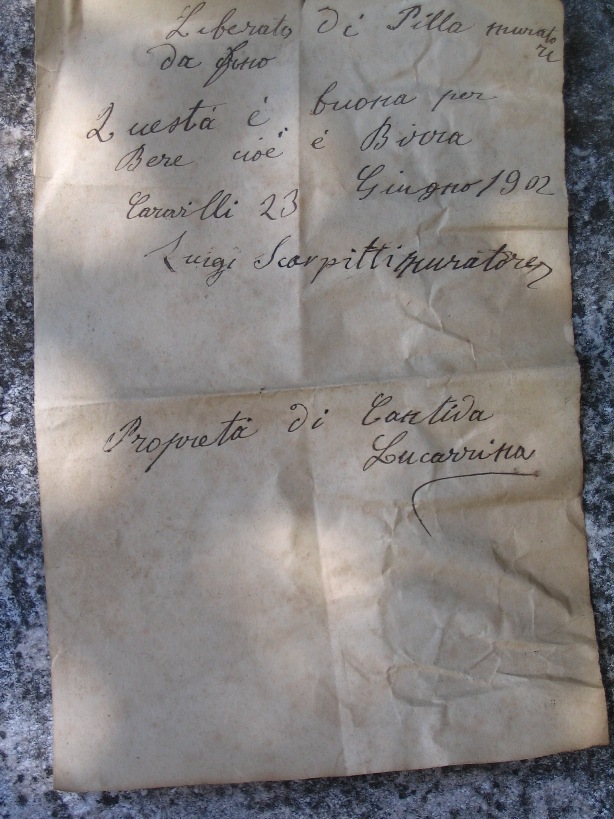 Liberato di Pilla murato
ri
da
Questa é buona per
Bere cioé é Birra
23 Giugno 1902
Luigi Scarpitti muratore
Propretá di Cantida
Lucarrina